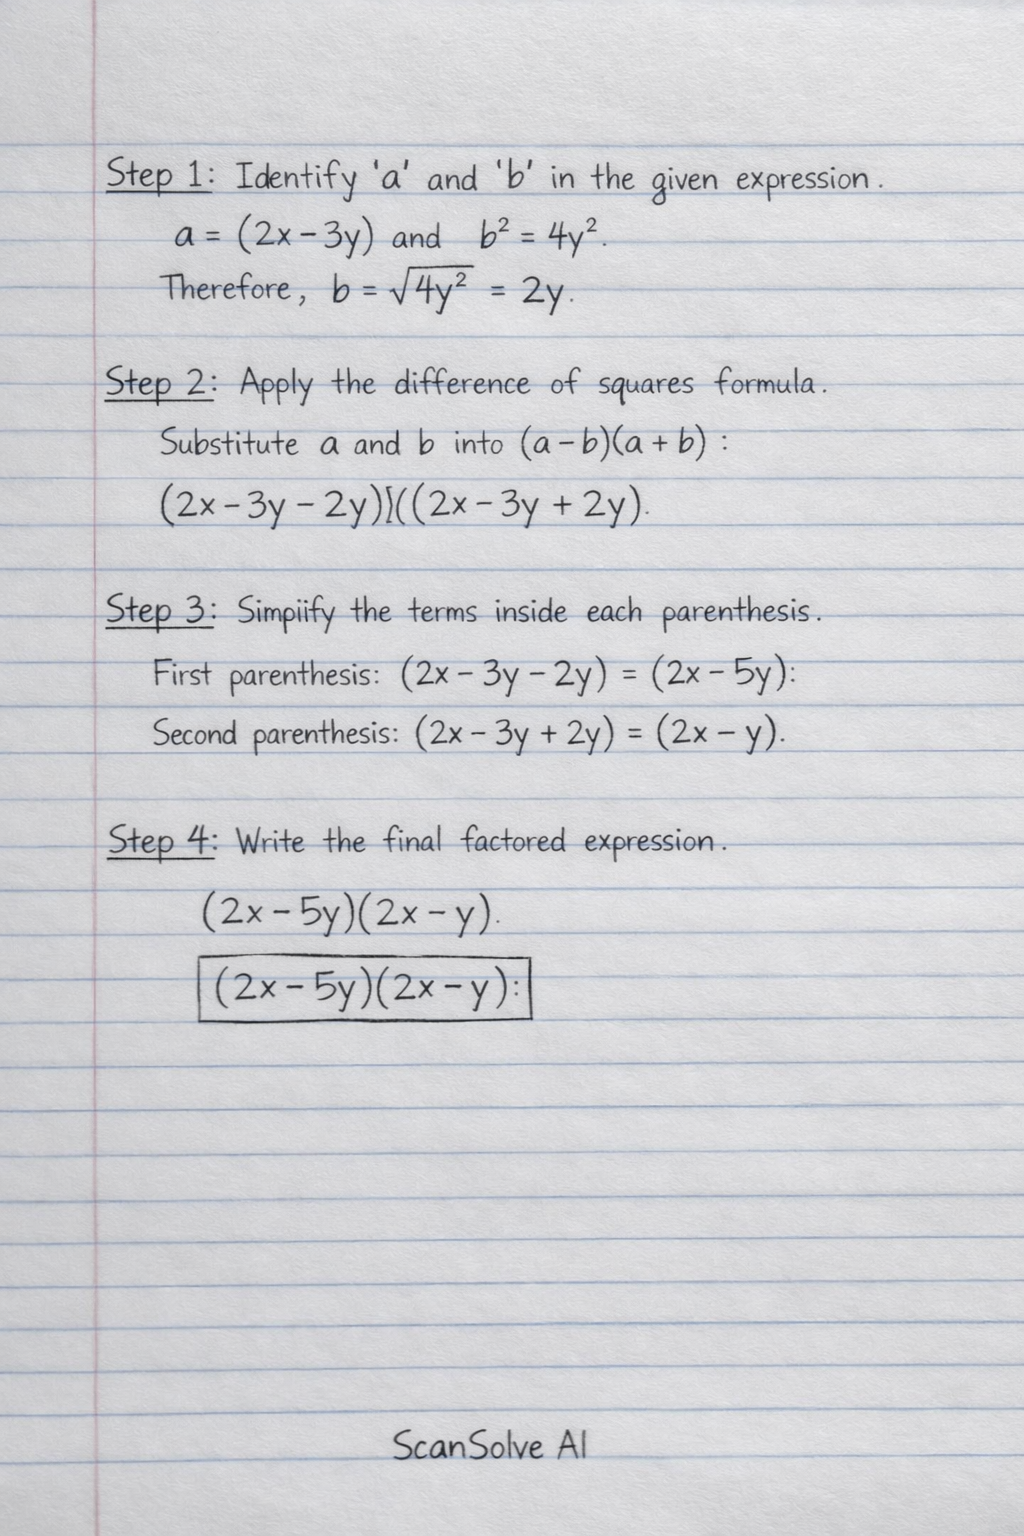 Step 1: Identify 'a' and 'b' in the given expression.
a = (2x - 3y) and b² = 4y².
Therefore, b = √4y² = 2y.
Step 2: Apply the difference of squares formula.
Substitute a and b into (a - b)(a + b) :
(2x - 3y - 2y)][((2x - 3y + 2y).
Step 3: Simpiify the terms inside each parenthesis.
First parenthesis: (2x - 3y - 2y) = (2x - 5y):
Second parenthesis: (2x - 3y + 2y) = (2x - y).
Step 4: Write the final factored expression.
(2x - 5y)(2x - y).
(2x - 5y)(2x - y):
ScanSolve AI